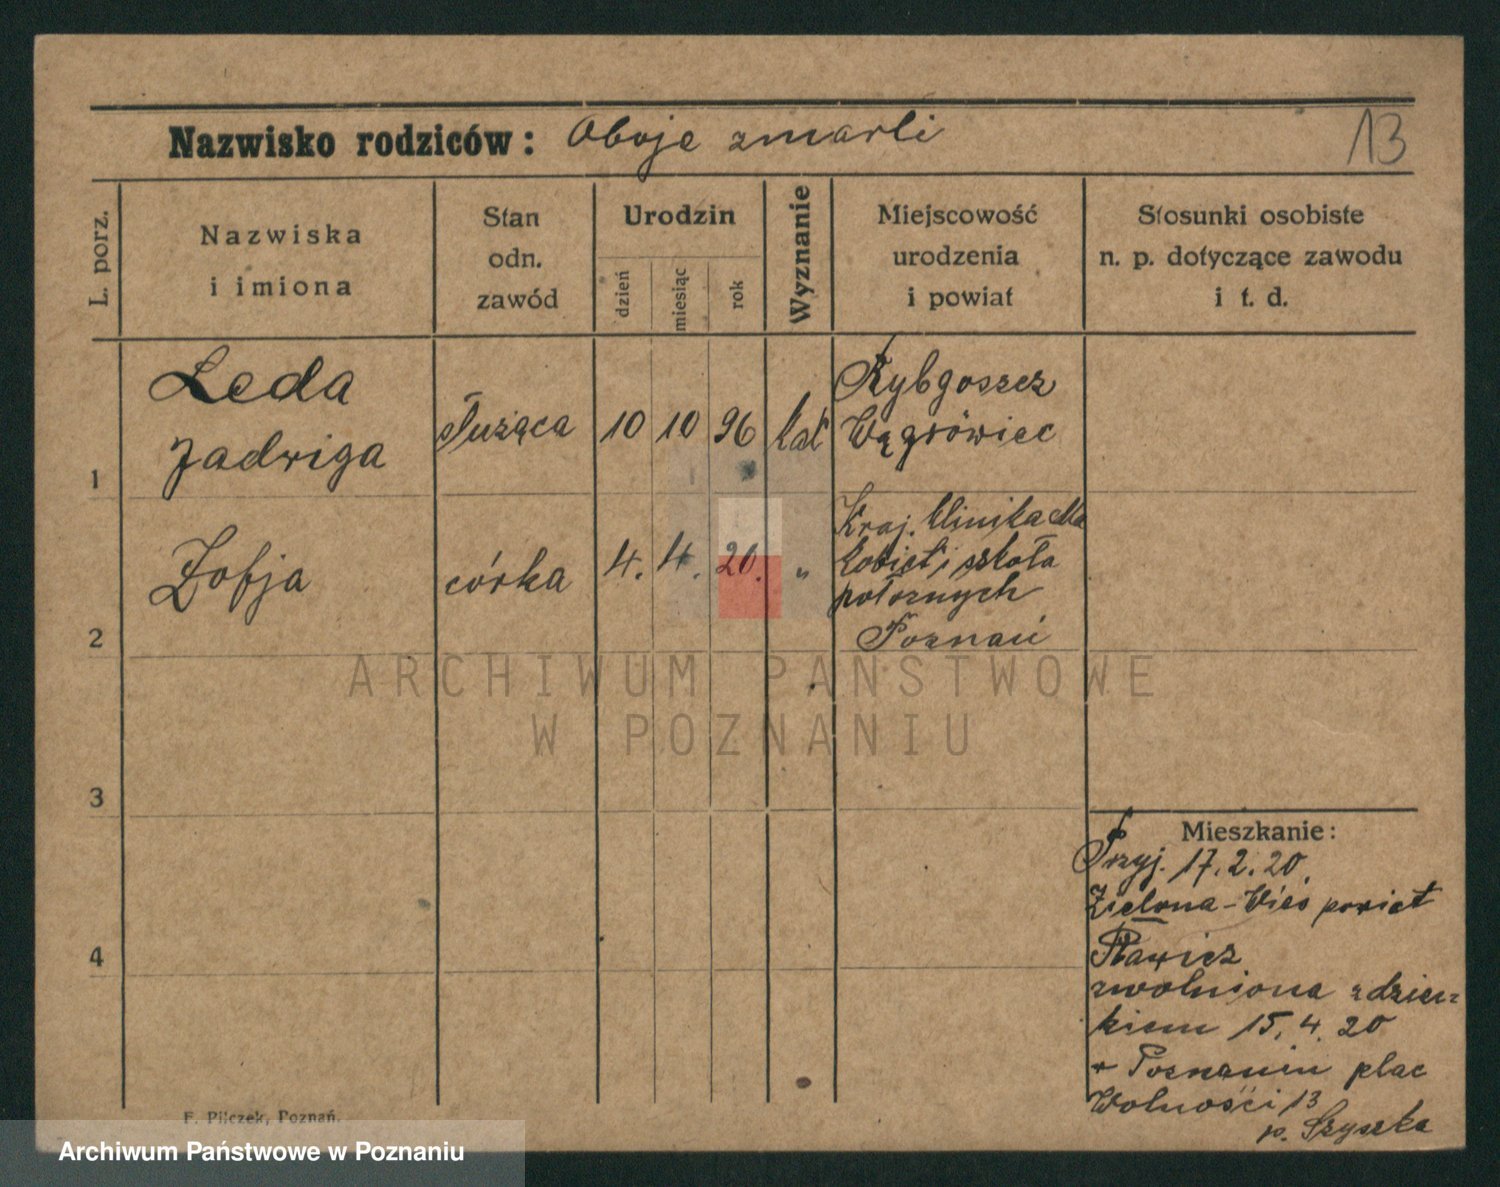 Nazwisko rodziców: Oboje zmarli
13
L. porz.
Nazwiska
i imiona
Stan
odn.
zawód
Urodzin
dzień
miesiąc
rok
Wyznanie
Miejscowość
urodzenia
i powiat
Stosunki osobiste
n. p. dotyczące zawodu
i t. d.
1
Leda
Jadwiga
służąca
10 10 96
kat
Rybgoszcz
Wągrówiec
2
Zofja
córka
4. 4. 20.
"
Kraj. klinika dla
kobiet i szkoła
położnych
Poznań
3
4
Mieszkanie:
Przyj. 17.2.20.
Zielona-Wieś powiat
Rawicz
zwolniona z dziec-
kiem 15.4.20
w Poznaniu plac
Wolności 13
p. Szyszka
F. Pilczek, Poznań.
ARCHIWUM PAŃSTWOWE
W POZNANIU
Archiwum Państwowe w Poznaniu